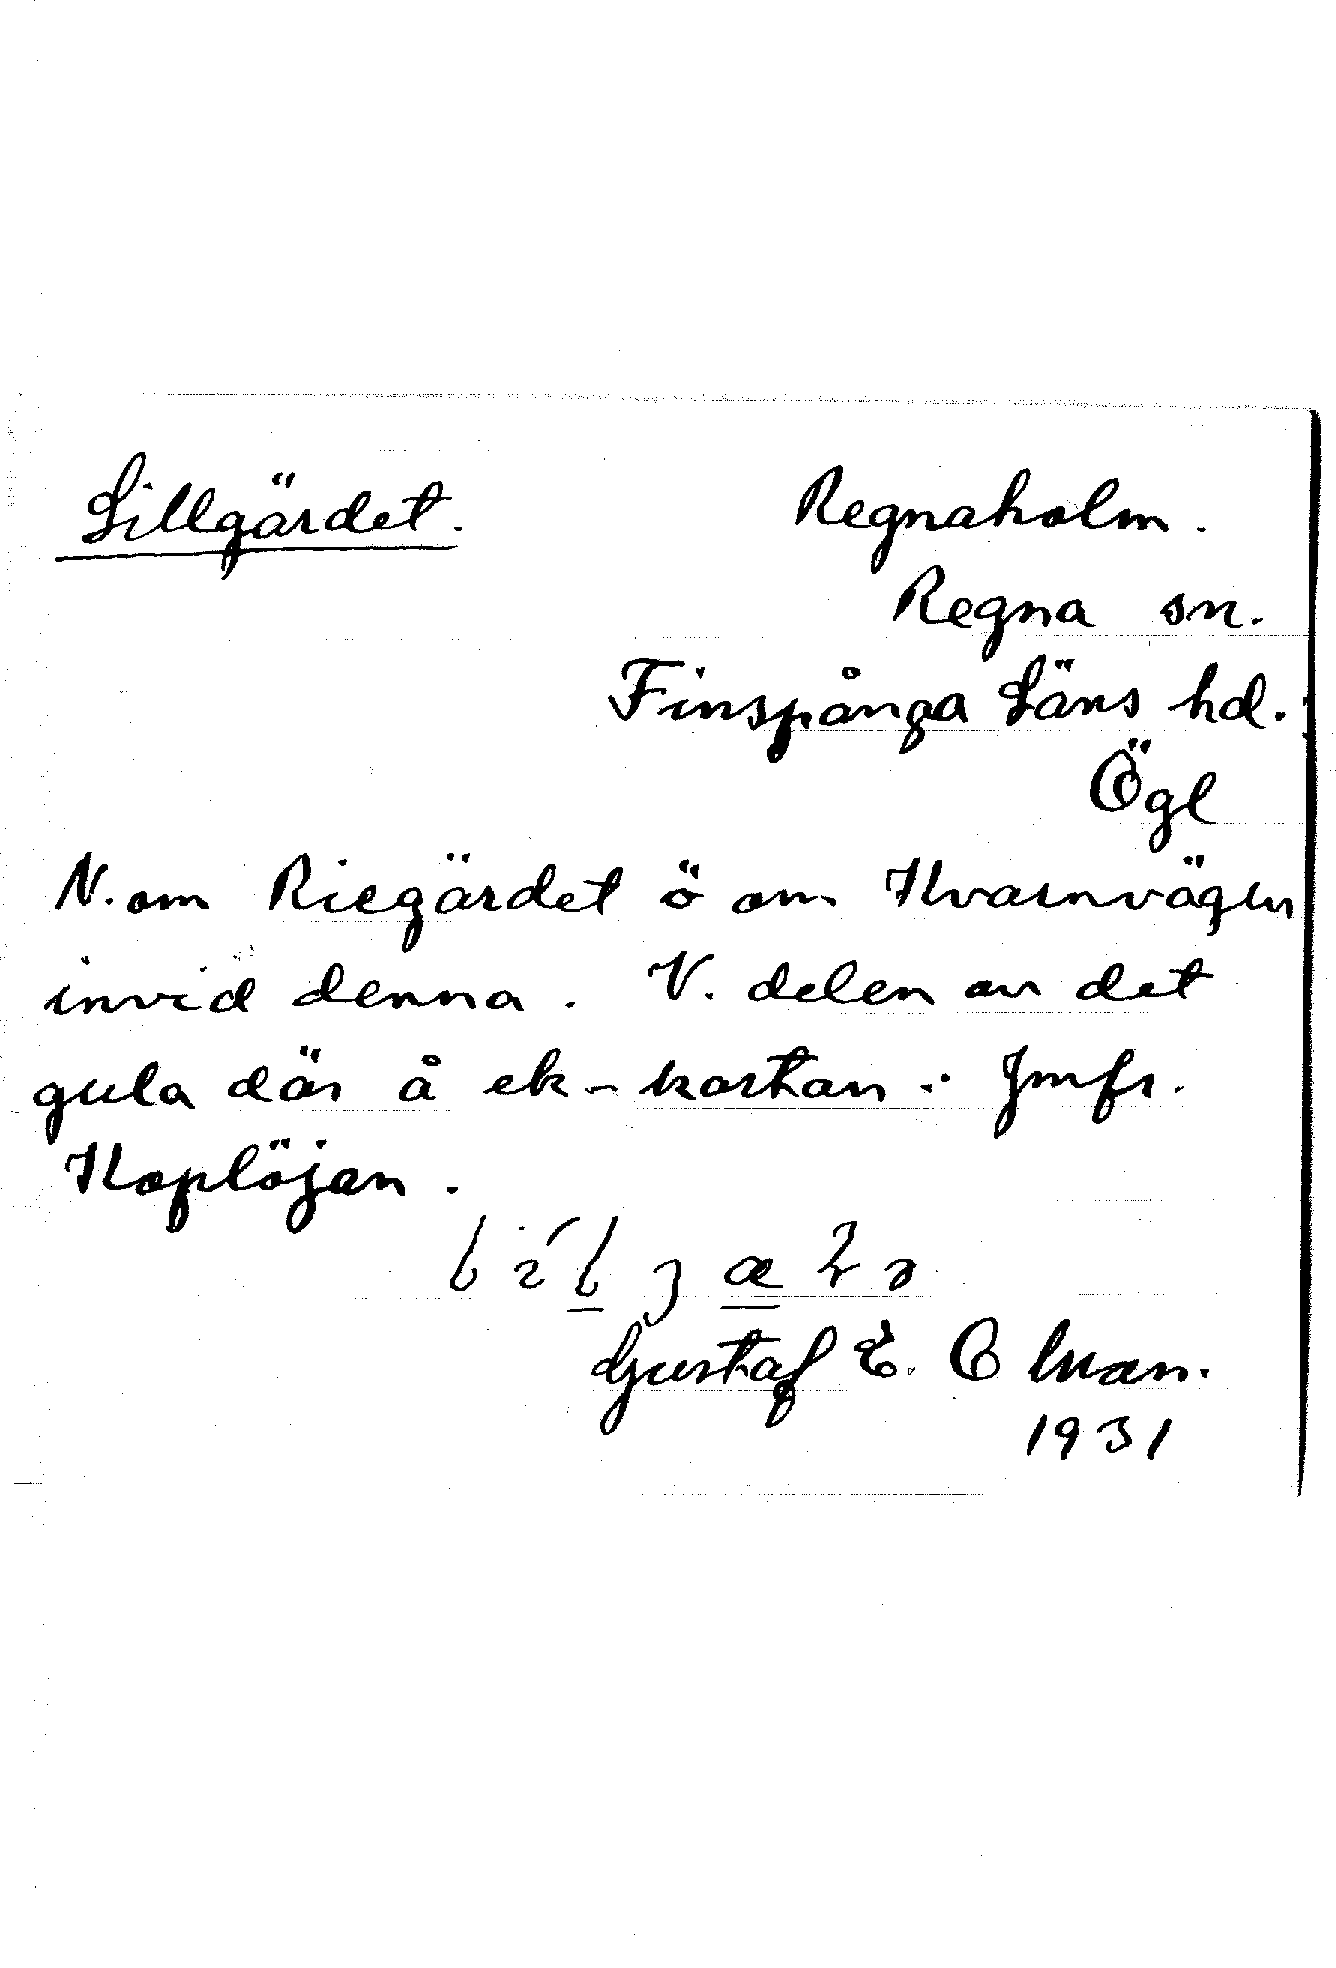 Lillgärdet.
Regnaholm.
Regna sn.
Finspånga Läns hd.
Ögl
N. om Riegärdet ö om Kvarnvägen
invid denna. V. delen av det
gula där å ek-kartan. Jmfr.
Koplöjan.
Gustaf E. C Iman.
1931